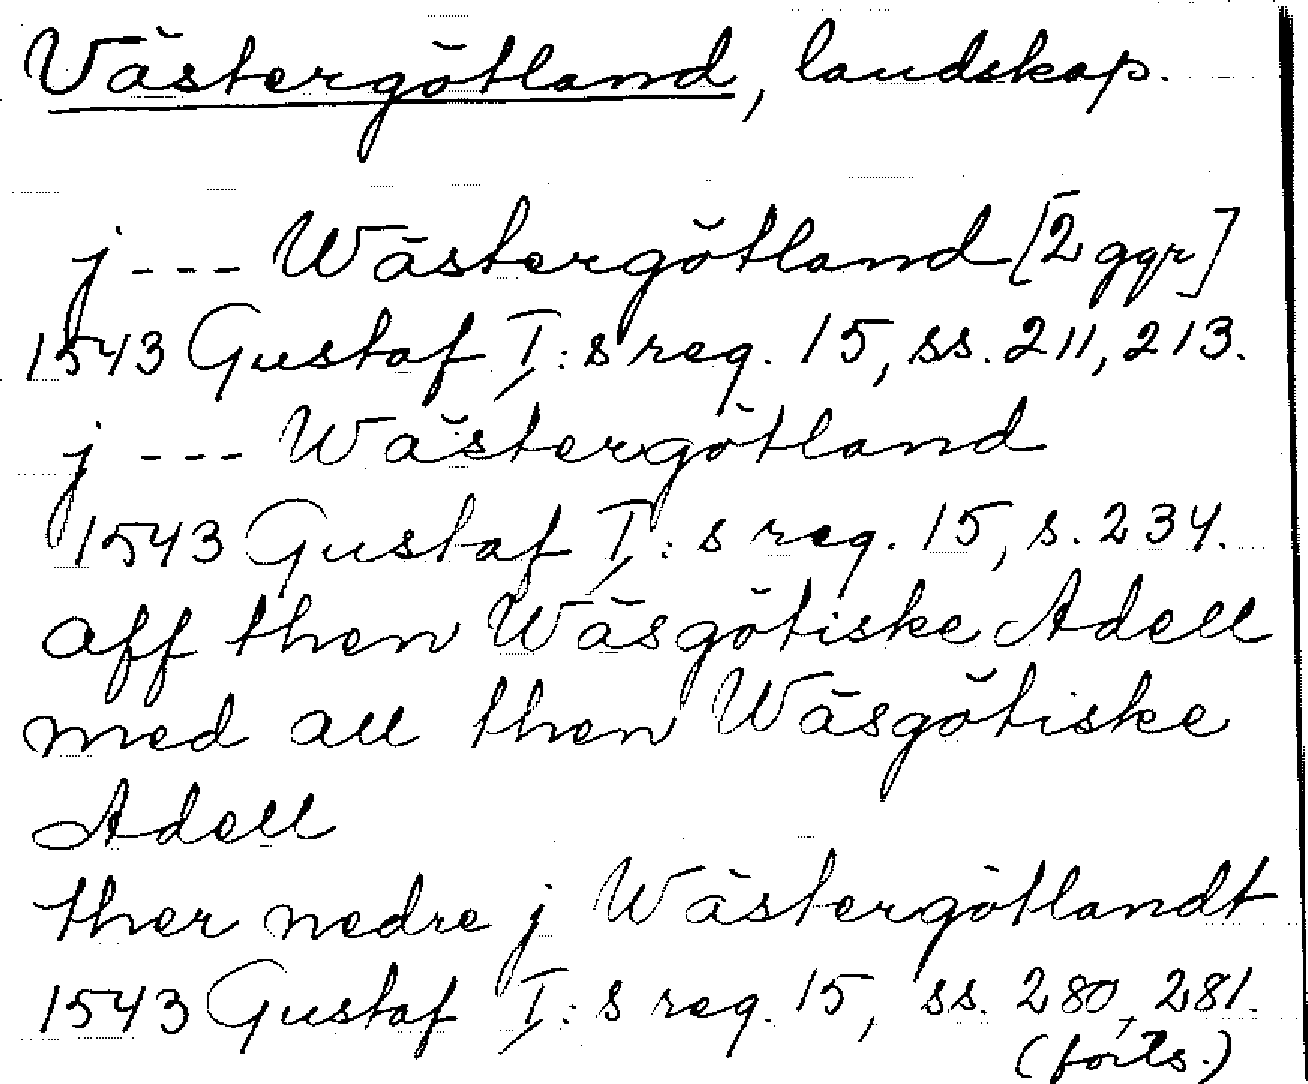 Västergötland, landskap.
j --- Wästergötland [2 ggr]
1543 Gustaf I:s reg. 15, ss. 211, 213.
j --- Wästergötland
1543 Gustaf I:s reg. 15, s. 234.
aff then Wäsgötiske Adell
med all then Wäsgötiske
Adell
ther nedre j Wästergötlandt
1543 Gustaf I:s reg. 15, ss. 280, 281.
(forts.)